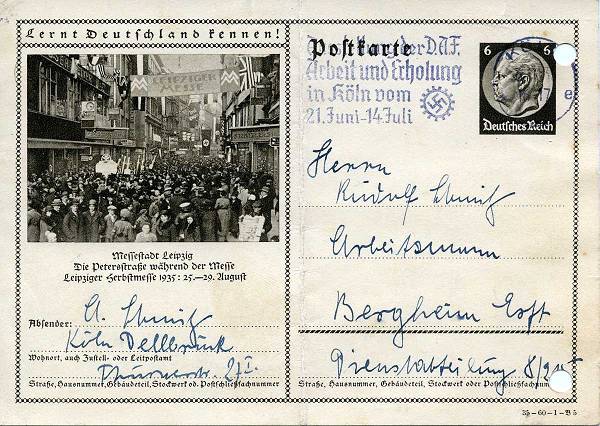 Lernt Deutschland kennen!
LEIPZIGER
MESSE
Messestadt Leipzig
Die Petersstraße während der Messe
Leipziger Herbstmesse 1935: 25.—29. August
Absender: A. Schmitz
Köln Dellbrück
Wohnort, auch Zustell- oder Leitpostamt
Thurnerstr. 27 I.
Straße, Hausnummer, Gebäudeteil, Stockwerk od. Postschließfachnummer
Postkarte
der D.A.F.
Arbeit und Erholung
in Köln vom
21. Juni-14. Juli
6 6
Deutsches Reich
e
Herrn
Rudolf Schmitz
Arbeitsmann
Bergheim Erft
Dienstabteilung
Straße, Hausnummer, Gebäudeteil, Stockwerk oder Postschließfachnummer
35-60-1-B5